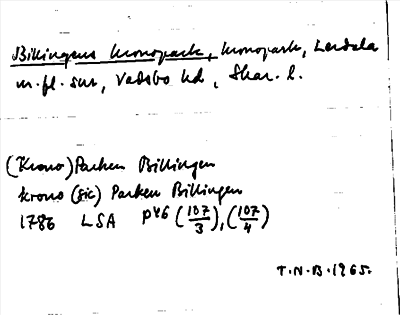 Billingens kronopark, kronopark, Lerdala
m.fl. snr, Vadsbo hd, Skar. l.
(Krono) Parken Billingen
krono (sic) Parken Billingen
1786 LSA P46 (107/3), (107/4)
T.N.B. 1965.